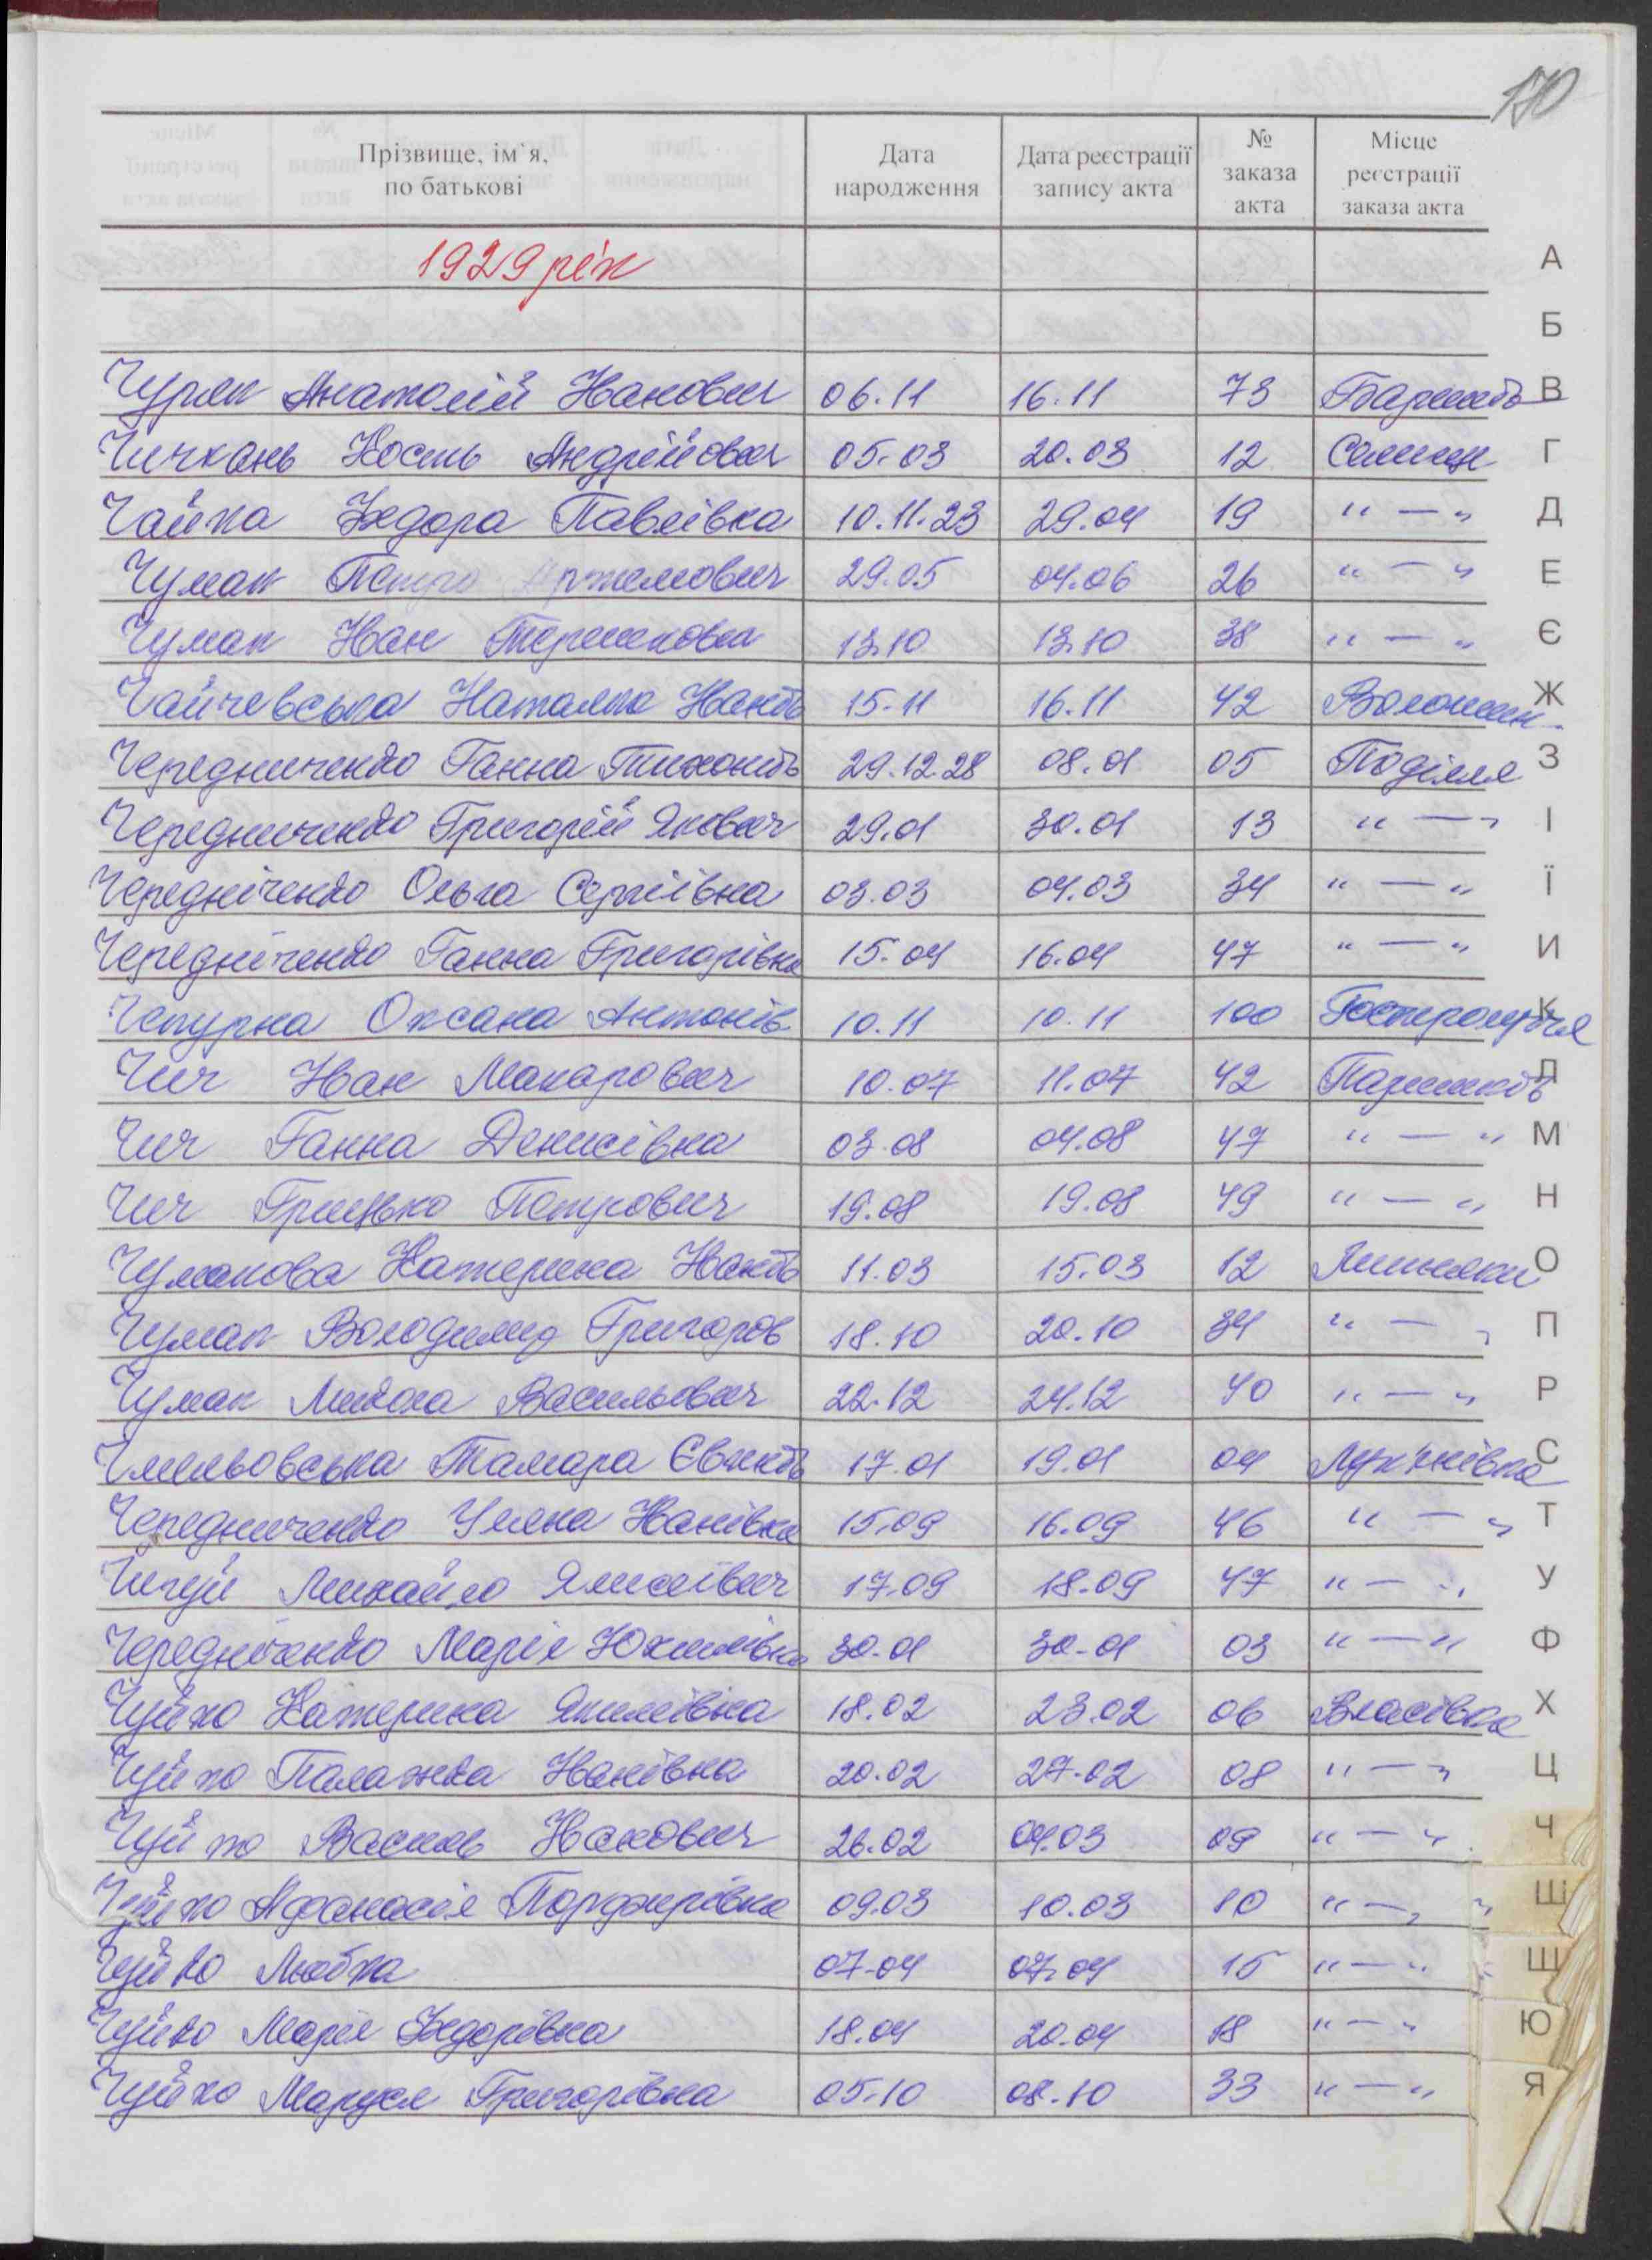 170
Прізвище, ім`я, по батькові | Дата народження | Дата реєстрації запису акта | № заказа акта | Місце реєстрації заказа акта
1929 рік
Чуряк Анатолій Іванович 06.11 16.11 73
Чичкань Кость Андрійович 05.03 20.03 12 Селище
Чайка Федора Павлівка 10.11.23 29.04 19 " — "
Чумак Петро Артемович 29.05 04.06 26 " — "
Чумак Іван 13.10 13.10 38 " — "
Чайчевська Наталка Іванів 15.11 16.11 42
Чередниченко Ганна Тихонів 29.12.28 08.01 05 Поділля
Чередниченко Григорій Якович 29.01 30.01 13 " — "
Чередніченко Ольга Сергіівна 03.03 04.03 34 " — "
Чередніченко Ганна Григорівна 15.04 16.04 47 " — "
Чепурна Оксана Антонів 10.11 10.11 100 Гостролуччя
Чич Іван Макарович 10.07 11.07 42 Паришків
Чич Ганна Денисівна 03.08 04.08 47 " — "
Чич Грицько Петрович 19.08 19.08 49 " — "
Чумакова Катерина Іванів 11.03 15.03 12 Лишняки
Чумак Володимир Григоров 18.10 20.10 34 " — "
Чумак Микола Васильович 22.12 24.12 40 " — "
Чмильовська Тамара 17.01 19.01 04 Лук'янівка
Чередниченко Уляна Іванівна 15.09 16.09 46 " — "
Михайло 17.09 18.09 47 " — "
Чередніченко Марія Юхимівна 30.01 30.01 03 " — "
Чуйко Катерина Якимівна 18.02 23.02 06 Власівка
Чуйко Палажка Іванівна 20.02 27.02 08 " — "
Чуйко Василь Іванович 26.02 04.03 09 " — "
Чуйко Афанасія Порфирівна 09.03 10.03 10 " — "
Чуйко Любка 07.04 07.04 15 " — "
Чуйко Марія Федорівна 18.04 20.04 18 " — "
Чуйко Маруся Григорівна 05.10 08.10 33 " — "
А
Б
В
Г
Д
Е
Є
Ж
З
І
Ї
И
К
Л
М
Н
О
П
Р
С
Т
У
Ф
Х
Ц
Ч
Ш
Щ
Ю
Я